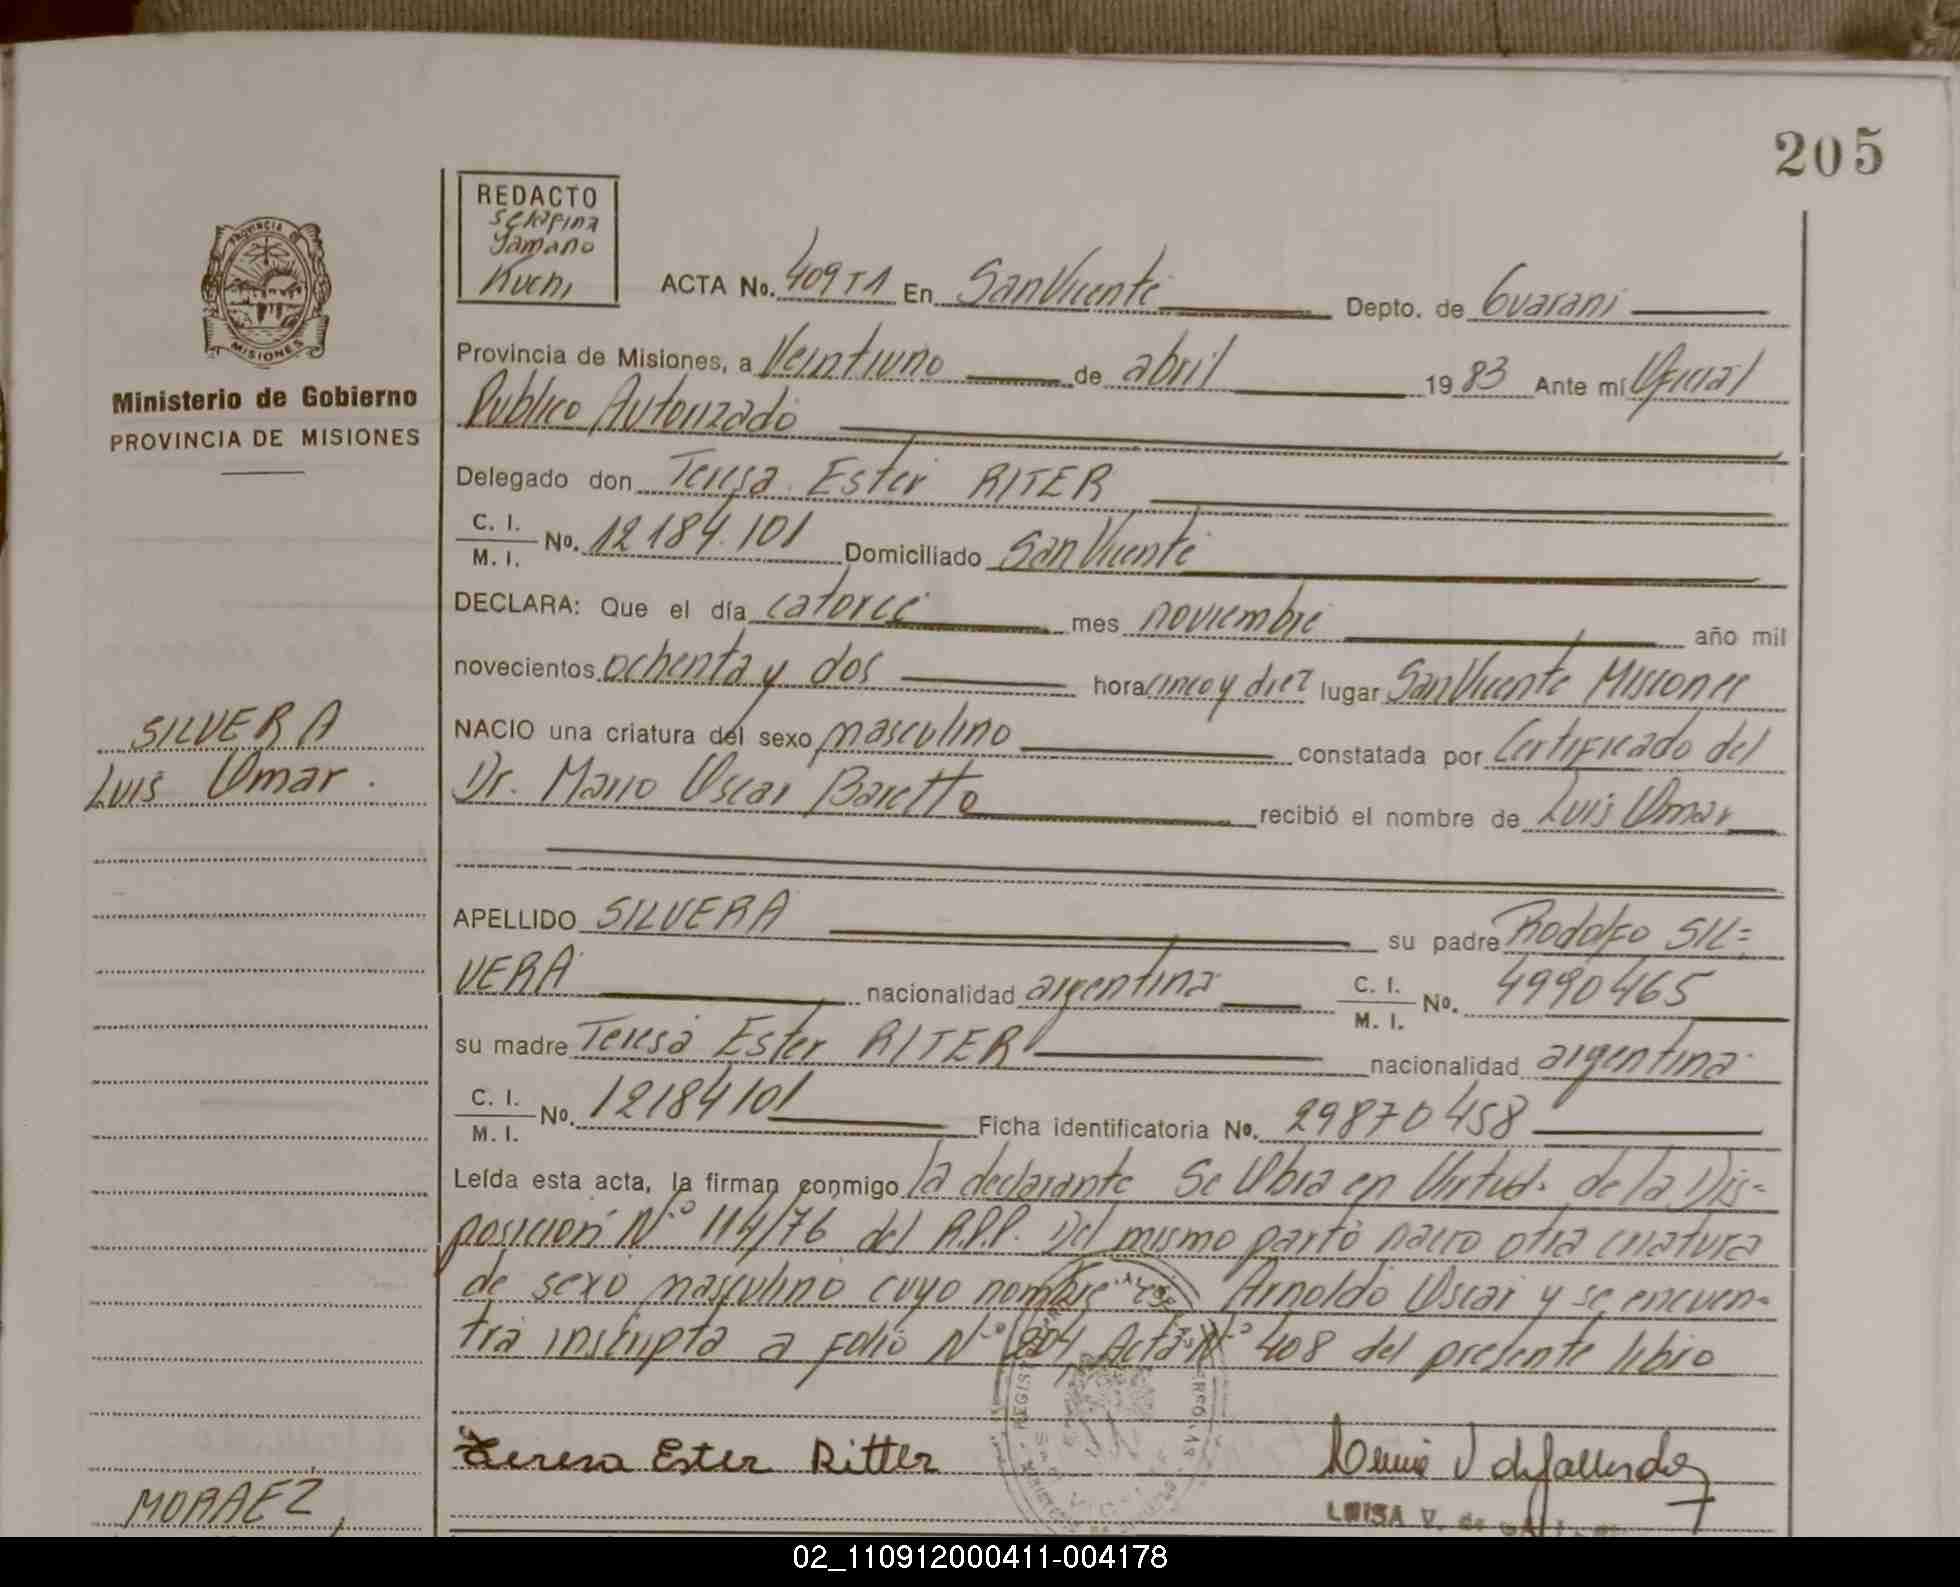 205
REDACTO
Serafina
Yamano
Kuchi
PROVINCIA DE
MISIONES
Ministerio de Gobierno
PROVINCIA DE MISIONES
ACTA No. 409 T1 En San Vicente Depto. de Guarani
Provincia de Misiones, a Veintiuno de abril 1983 Ante mí Oficial
Publico Autorizado
Delegado don Teresa Ester RITER
C. I. / M. I. No. 12184.101 Domiciliado San Vicente
DECLARA: Que el día catorce mes noviembre año mil
novecientos ochenta y dos hora cinco y diez lugar San Vicente Misiones
SILVERA
Luis Omar.
NACIO una criatura del sexo masculino constatada por Certificado del
Dr. Mario Oscar Baretto recibió el nombre de Luis Omar
APELLIDO SILVERA su padre Rodolfo SIL=
VERA nacionalidad argentina C. I. / M. I. No. 4990465
su madre Teresa Ester RITER nacionalidad argentina
C. I. / M. I. No. 12184101 Ficha identificatoria No. 29870458
Leída esta acta, la firman conmigo la declarante Se Obra en Virtud de la Dis=
posicion N° 114/76 del R.P.P. Del mismo parto nacio otra criatura
de sexo masculino cuyo nombre Arnoldo Oscar y se encuen=
tra inscripta a folio N° 204 Acta N° 408 del presente libro
Teresa Ester Ritter
LUISA V. de
MORAEZ,
02_110912000411-004178